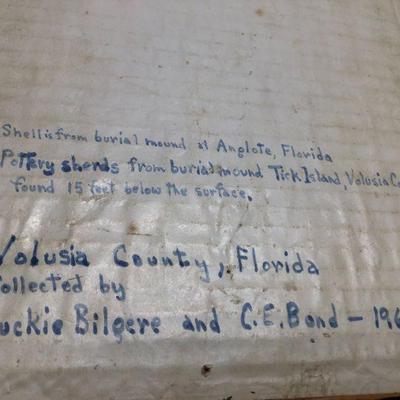 Shell is from burial mound at Anglote, Florida
Pottery sherds from burial mound Tick Island, Volusia Co
found 15 feet below the surface.
Volusia County, Florida
ollected by
uckie Bilgere and C.E. Bond - 196